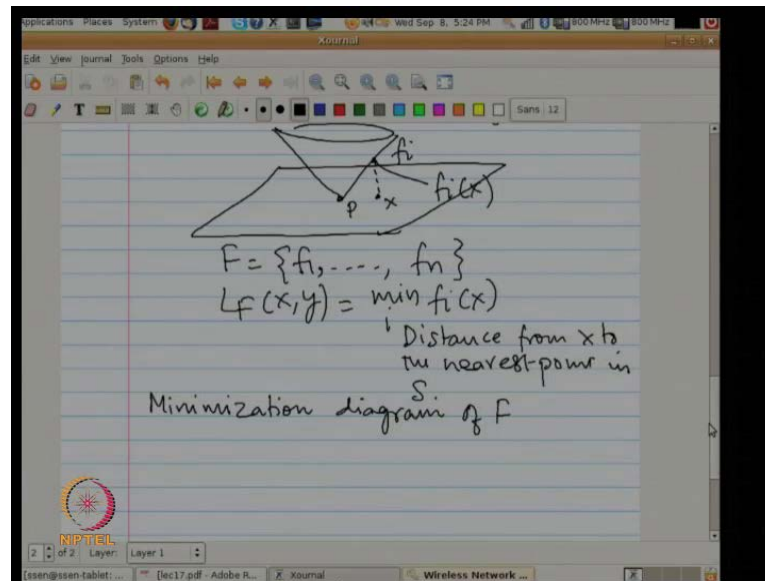 Applications Places System Wed Sep 8, 5:24 PM 800 MHz 800 MHz
Xournal
Edit View Journal Tools Options Help
T Sans 12
fi
fi(x)
P x
F = {f1, ----, fn}
LF(x,y) = min fi(x)
i
Distance from x to
the nearest-point in
S
Minimization diagram of F
NPTEL
2 of 2 Layer: Layer 1
[ssen@ssen-tablet: ... [lec17.pdf - Adobe R... Xournal Wireless Network ...